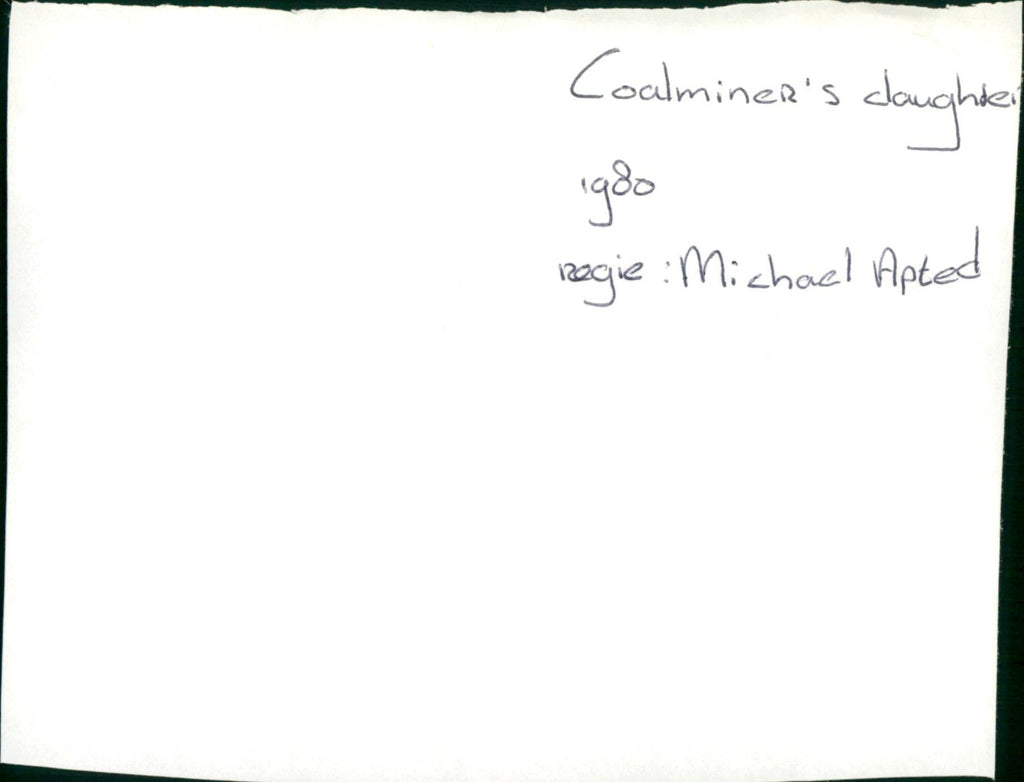 Coalminer's daughter
1980
regie : Michael Apted